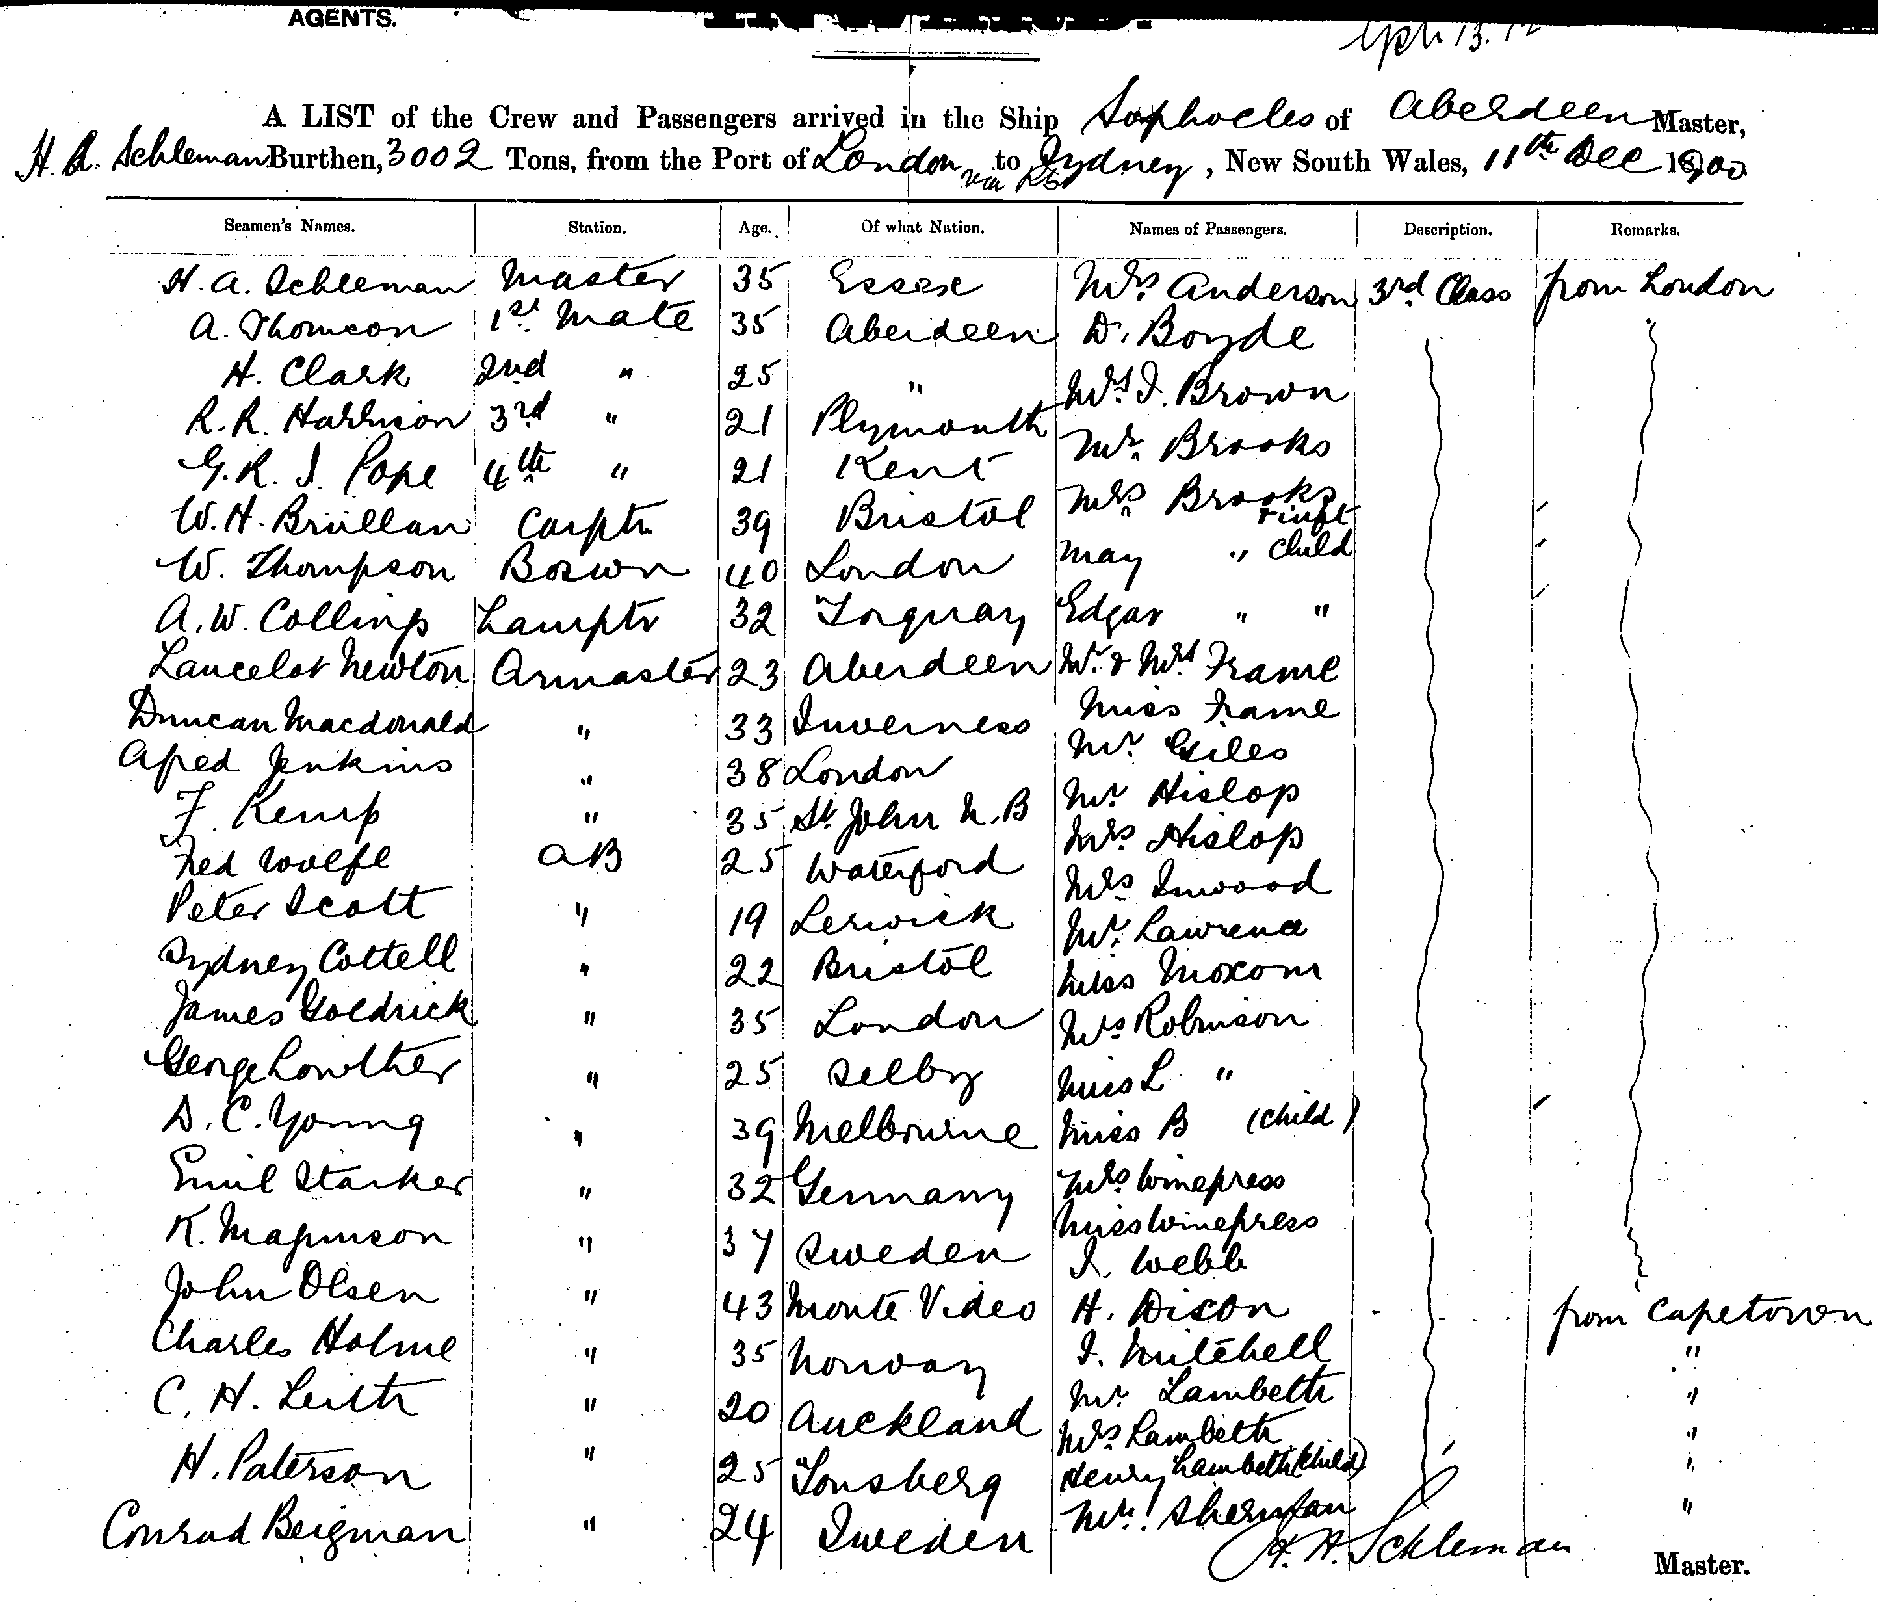 AGENTS.
A LIST of the Crew and Passengers arrived in the Ship Sophocles of Aberdeen Master,
H. A. Schleman Burthen, 3002 Tons, from the Port of London via to Sydney, New South Wales, 11th Dec 1900
Seamen's Names. Station. Age. Of what Nation. Names of Passengers. Description. Remarks.
H. A. Schleman Master 35 Essex Mrs Anderson 3rd Class from London
A. Thomson 1st Mate 35 Aberdeen D. Boyde "
H. Clark 2nd " 25 " Mrs I. Brown
R. R. Harrison 3rd " 21 Plymouth Mr. Brooks
G. R. I. Pope 4th " 21 Kent Mrs Brooks + inft
W. H. Brullan Carptr 39 Bristol May " child
W. Thompson Boswn 40 London Edgar " "
A. W. Collings Lamptr 32 Torquay Mr. & Mrs Frame
Lancelot Newton Qrmaster 23 Aberdeen Miss Frame
Duncan Macdonald " 33 Inverness Mr. Giles
Alfred Jenkins " 38 London Mr Hislop
F. Kemp " 35 St. John N.B Mrs Hislop
Fred Wolfe AB 25 Waterford Mrs Inwood
Peter Scott " 19 Lerwick Mr. Lawrence
Sydney Cottell " 22 Bristol Miss Moxom
James Goldrick " 35 London Mrs Robinson
George Lowther " 25 Selby Miss L "
D. C. Young " 39 Melbourne Miss B (child)
Emil Starker " 32 Germany Mrs Winepress
K. Magnuson " 37 Sweden Miss Winepress
I. Webb
John Olsen " 43 Monte Video H. Dixon from Capetown
Charles Holme " 35 Norway I. Mitchell "
C. H. Leith " 20 Auckland Mr Lambeth "
Mrs Lambeth "
H. Paterson " 25 Tonsberg Henry Lambeth (child) "
Conrad Bergman " 24 Sweden Mr. "
H. A. Schleman
Master.